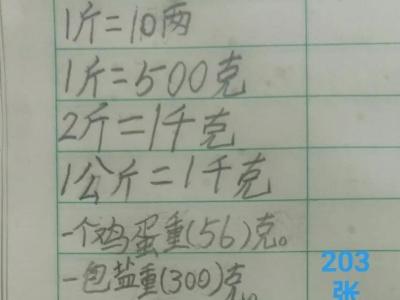 1斤=10两
1斤=500克
2斤=1千克
1公斤=1千克
一个鸡蛋重(56)克。
一包盐重(300)克。
203
张